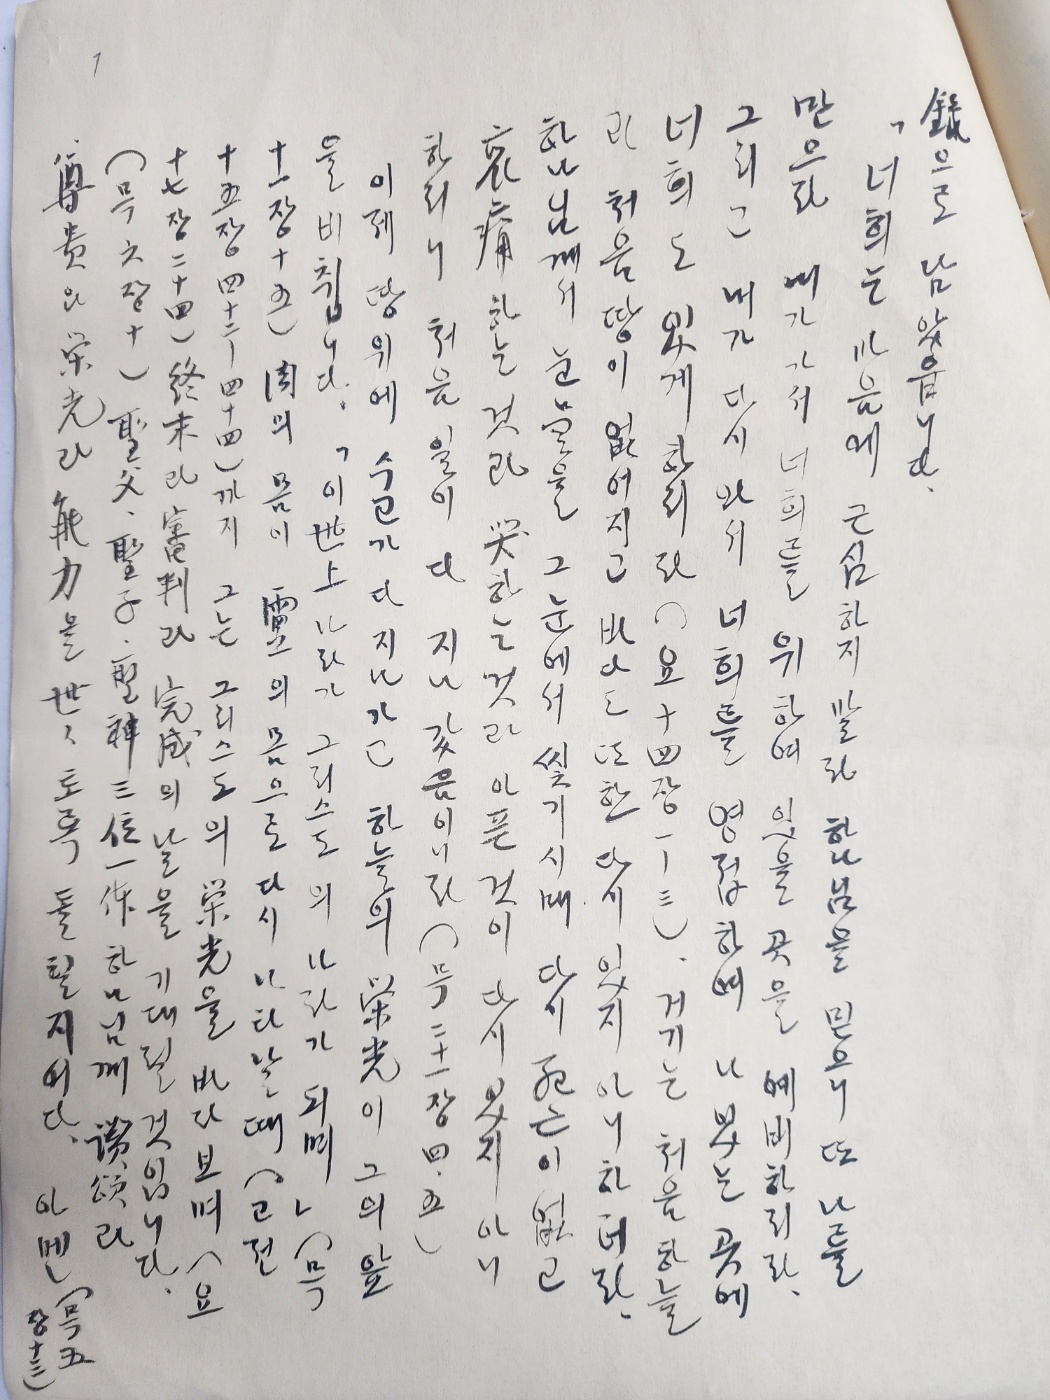 7
錄으로 남았읍니다.
「너희는 마음에 근심하지 말라 하나님을 믿으니 또 나를
믿으라 내가 가서 너희를 위하여 있을 곳을 예비하리라.
그리고 내가 다시 와서 너희를 영접하여 나 있는 곳에
너희도 있게 하리라 (요 十四장 一―三). 거기는 처음 하늘
과 처음 땅이 없어지고 바다도 또한 다시 있지 아니하더라.
하나님께서 눈물을 그 눈에서 씻기시매 다시 死亡이 없고
哀痛하는 것과 哭하는 것과 아픈 것이 다시 있지 아니
하리니 처음 일이 다 지나갔음이니라 (묵 二十一장 四.五)
이제 땅위에 수고가 다 지나가고 하늘의 栄光이 그의 앞
을 비칩니다. 「이 世上 나라가 그리스도의 나라가 되며」(묵
十一장 十五) 肉의 몸이 靈의 몸으로 다시 나타날 때 (고전
十五장 四十二―四十四)까지 그는 그리스도의 栄光을 바라보며 (요
十七장 二十四) 終末과 審判과 完成의 날을 기대할 것입니다.
(묵 六장 十) 聖父. 聖子. 聖神 三位一体 하나님께 讃頌과
尊貴와 栄光과 能力을 世々토록 돌릴지어다. 아멘 (묵 五
장 十三)